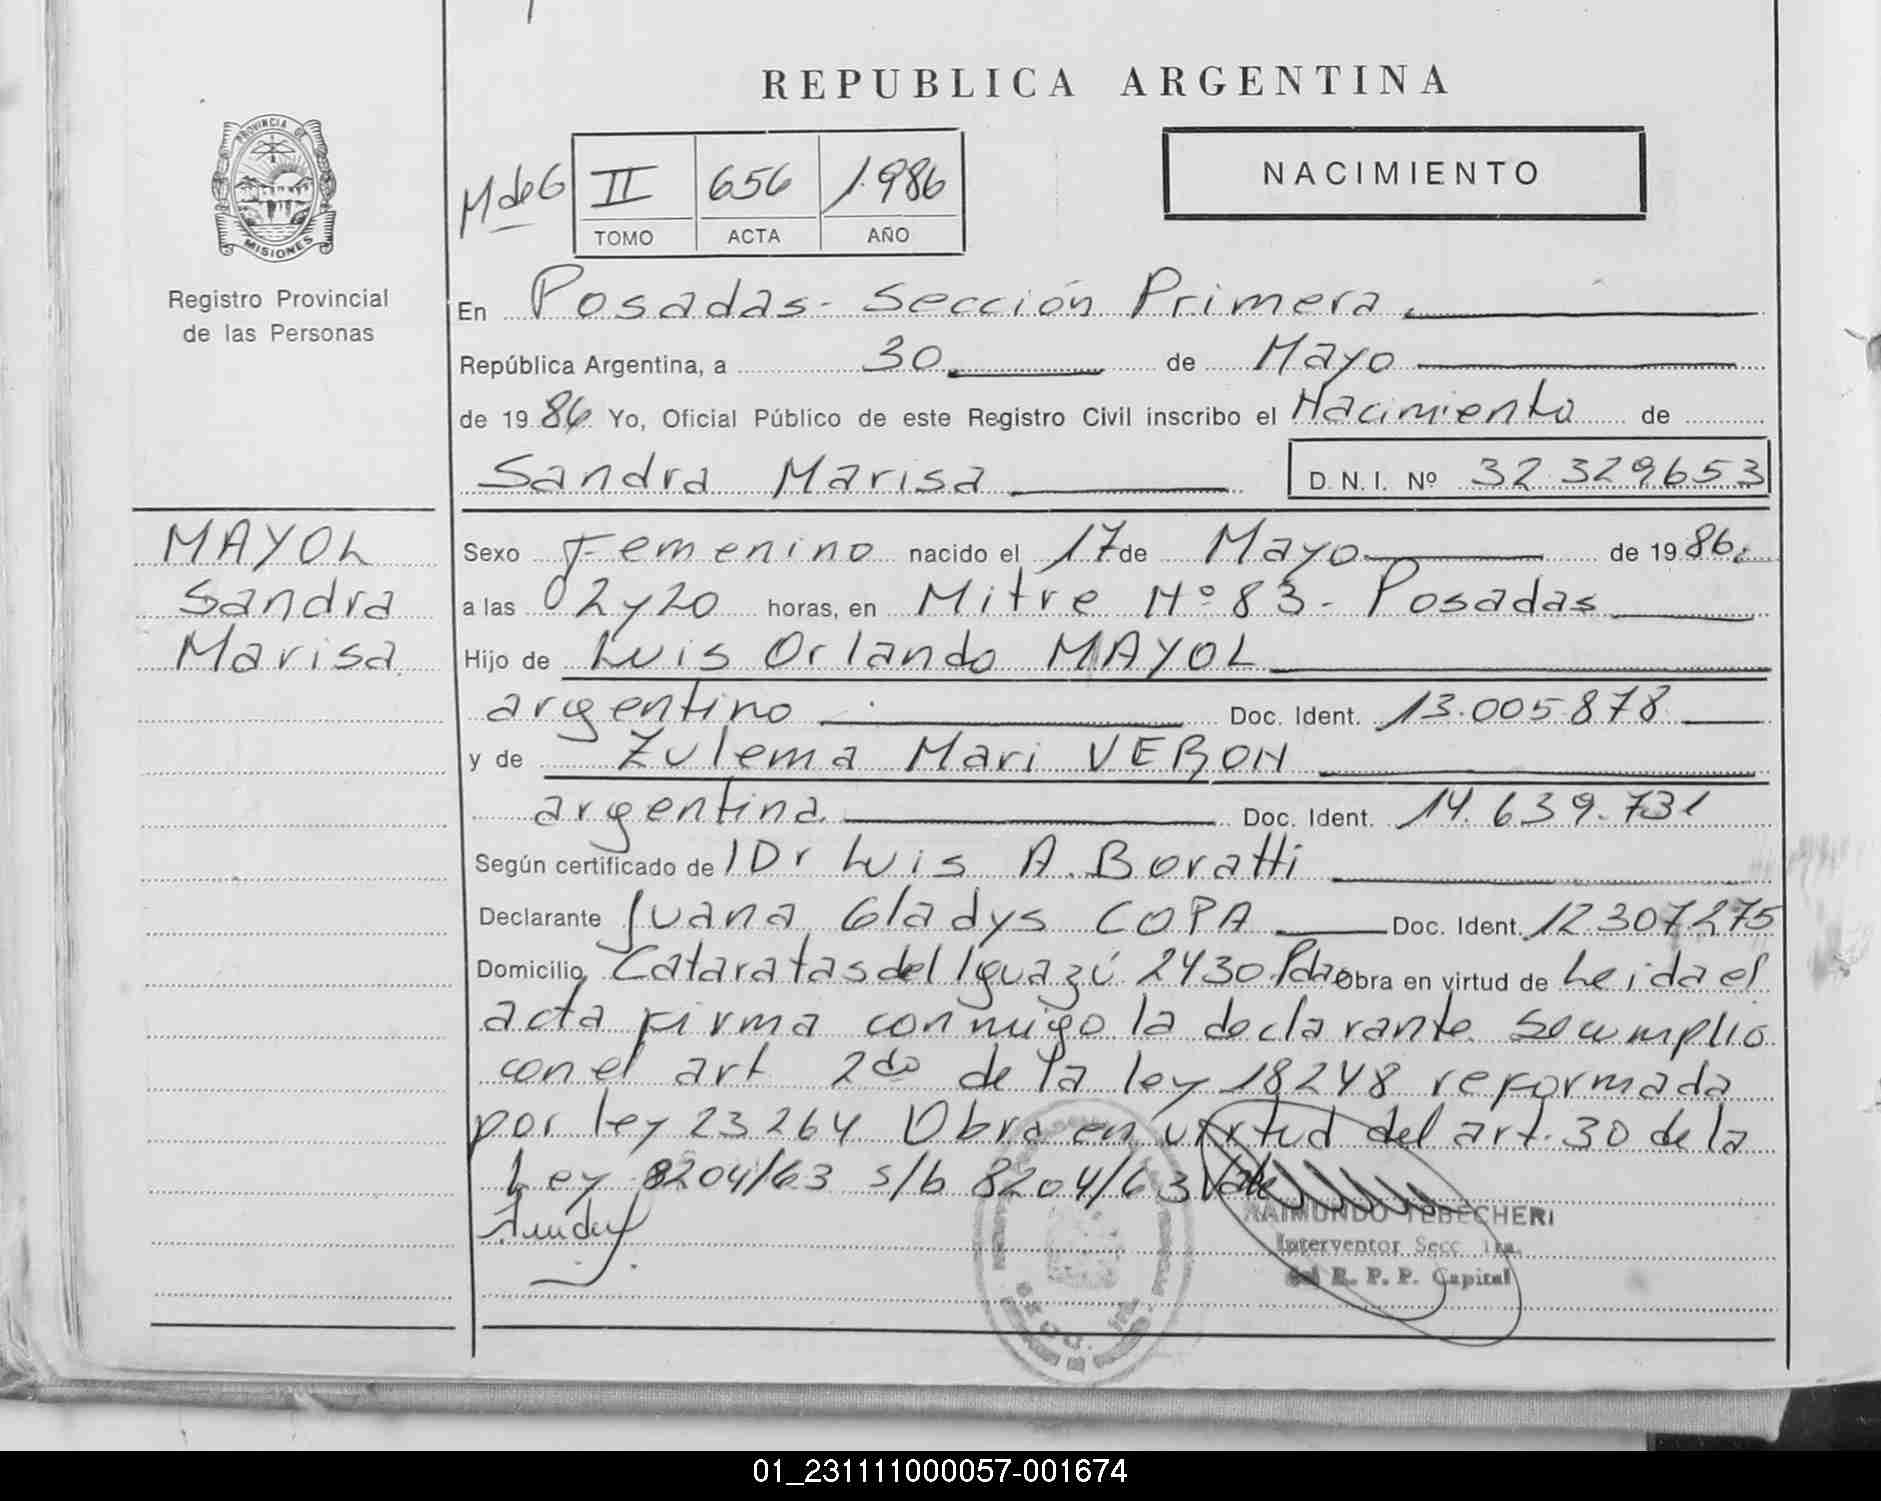 REPUBLICA ARGENTINA
PROVINCIA DE
MISIONES
Registro Provincial
de las Personas
NACIMIENTO
M de G II 656 1986
TOMO ACTA AÑO
En Posadas - Sección Primera
República Argentina, a 30 de Mayo
de 1986. Yo, Oficial Público de este Registro Civil inscribo el Nacimiento de
Sandra Marisa D.N.I. Nº 32 329653
MAYOL
Sandra
Marisa
Sexo Femenino nacido el 17 de Mayo de 1986.
a las 02 y 20 horas, en Mitre Nº 83 - Posadas
Hijo de Luis Orlando MAYOL
argentino Doc. Ident. 13.005.878
y de Zulema Mari VERON
argentina Doc. Ident. 14.639.731
Según certificado de Dr Luis A. Boratti
Declarante Juana Gladys COPA Doc. Ident. 12307275
Domicilio Cataratas del Iguazú 2430 Pdas Obra en virtud de Leida el
acta firma conmigo la declarante. Se cumplio
con el art 2do de la ley 18248 reformada
por ley 23264 Obra en virtud del art. 30 de la
Ley 8204/63 s/b 8204/63 Vale
RAIMUNDO TEBECHERI
Interventor Secc. 1ra.
del R. P. P. Capital
01_231111000057-001674